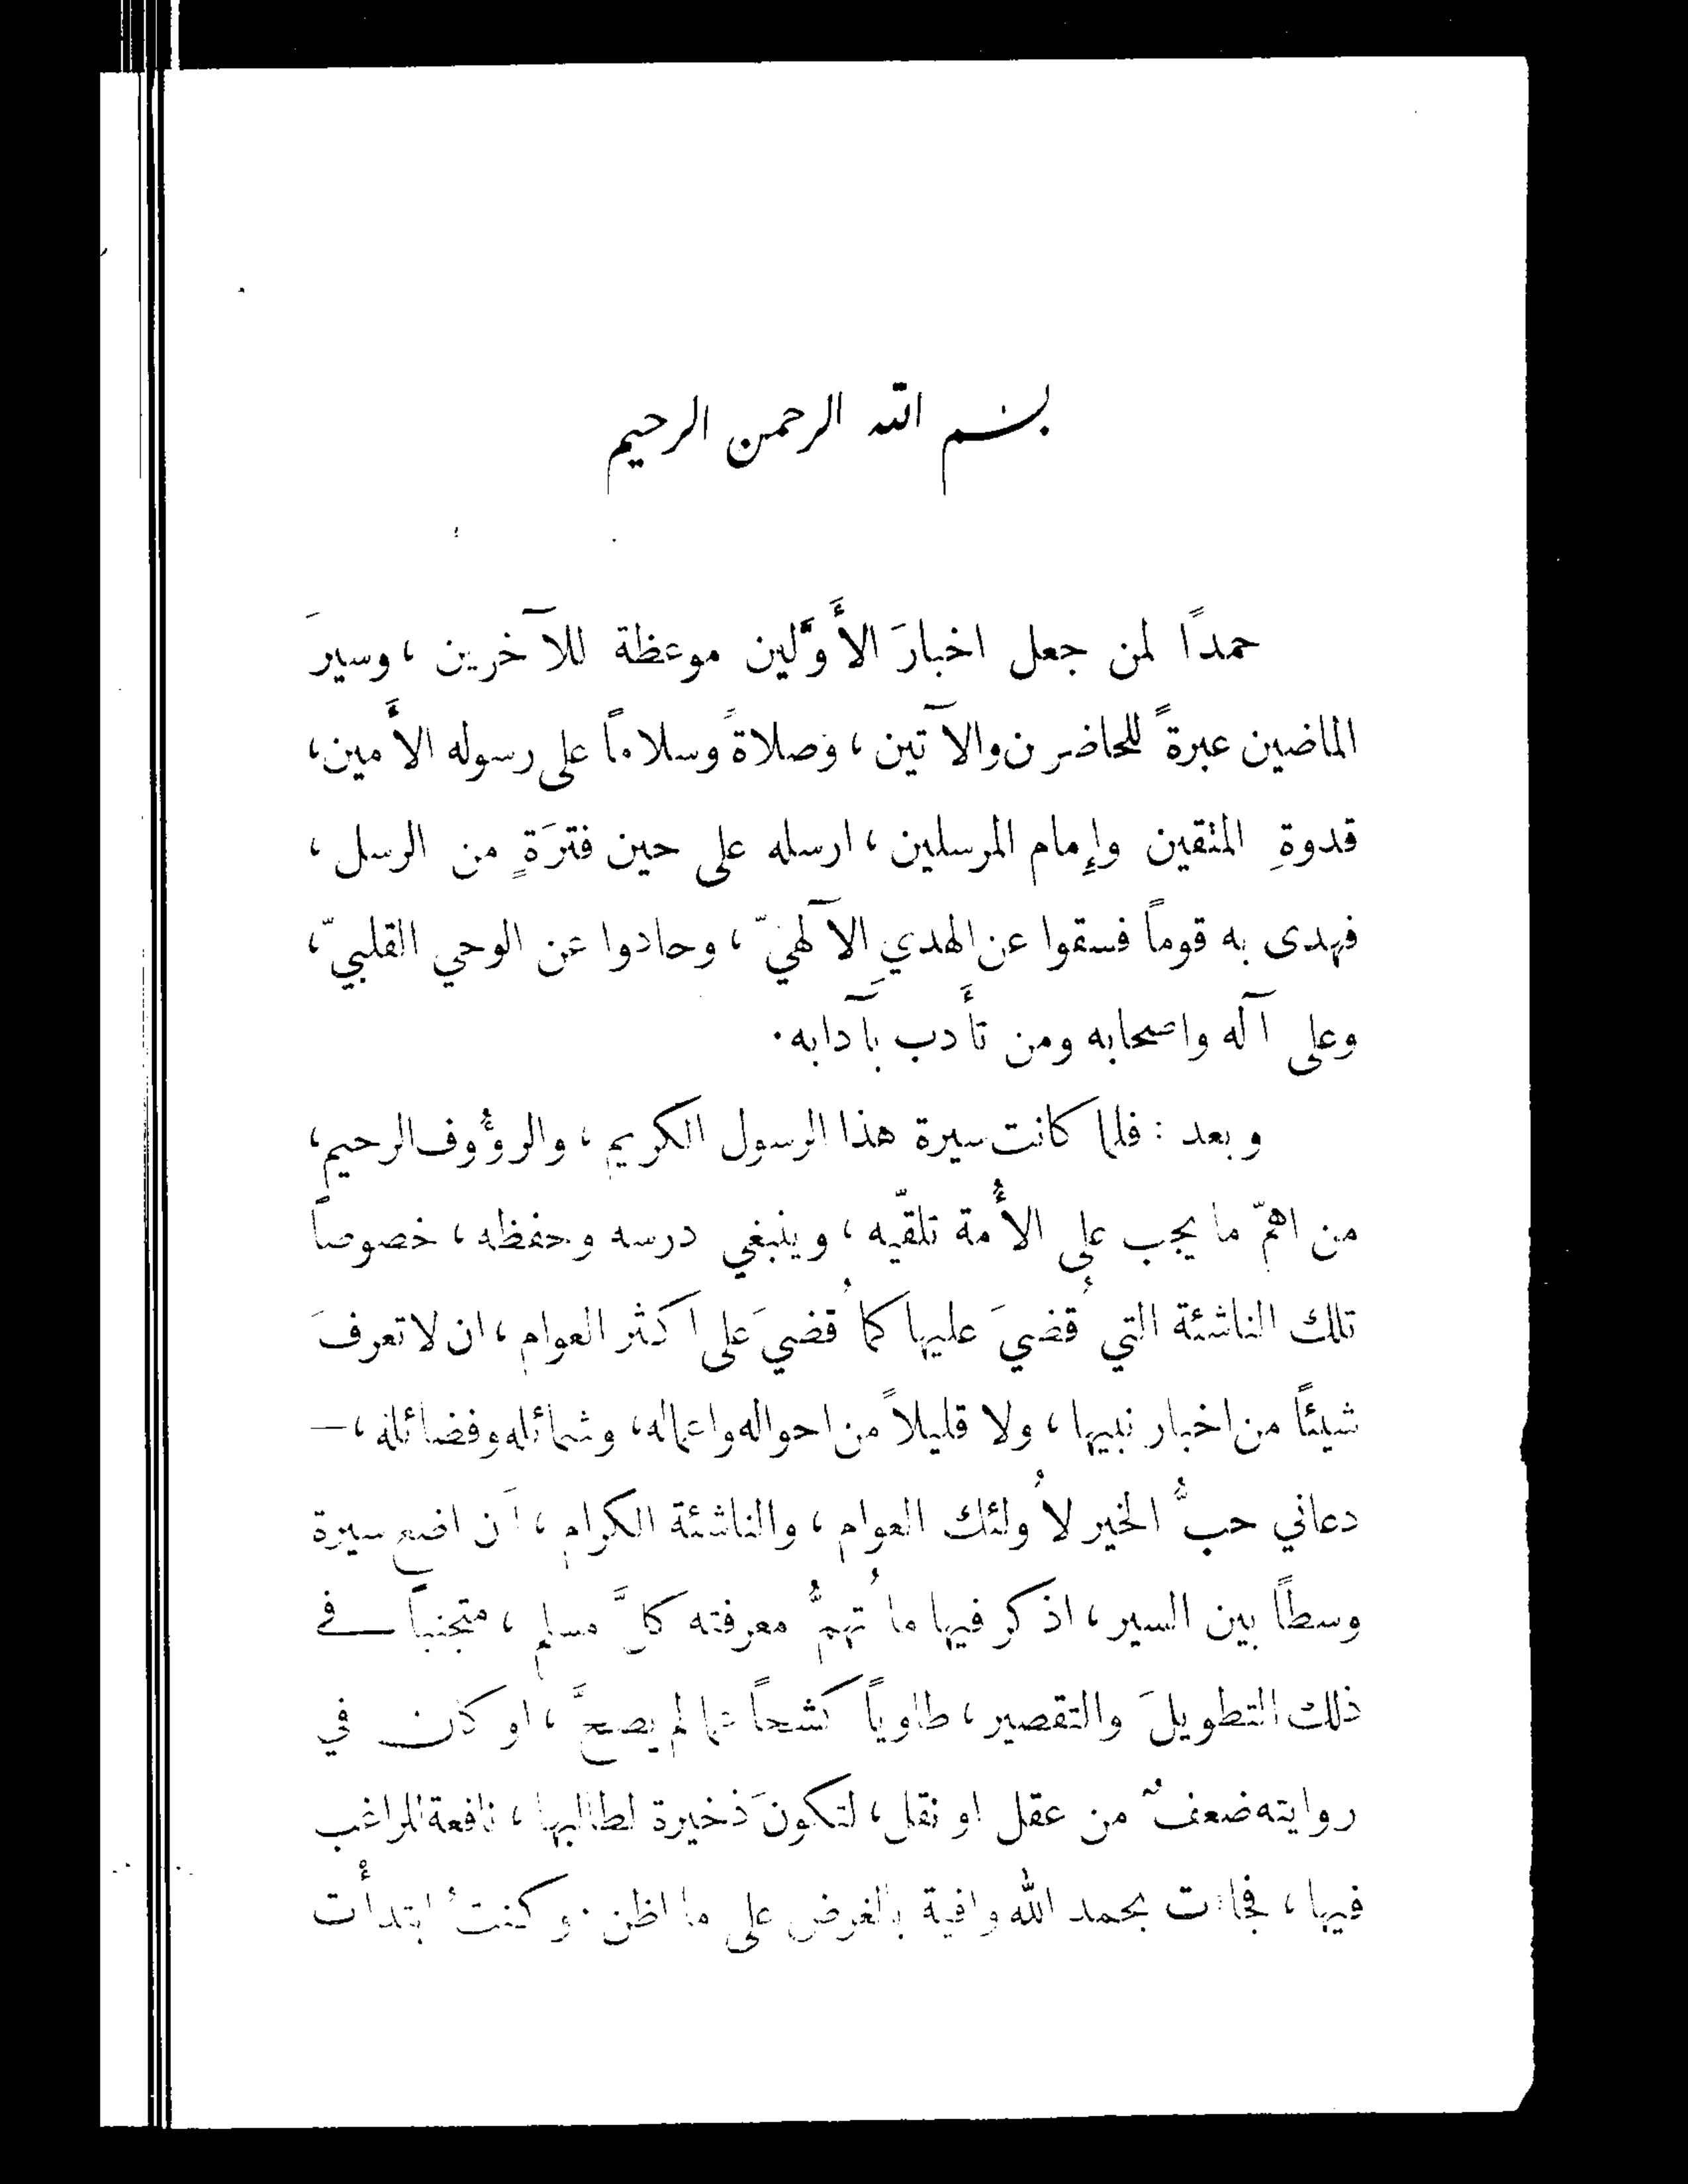 بسم الله الرحمن الرحيم
حمدًا لمن جعل اخبارَ الأَوَّلين موعظة للآخرين ، وسيرَ
الماضين عبرةً للحاضرين والآتين ، وصلاةً وسلاماً على رسوله الأَمين،
قدوةِ المتقين وإِمام المرسلين ، ارسله على حين فترَةٍ من الرسل ،
فهدى به قوماً فسقوا عن الهديِ الآلهيّ ، وحادوا عن الوحي القلبيّ ،
وعلى آله واصحابه ومن تأَدب بآدابه.
وبعد : فلما كانت سيرة هذا الرسول الكريم ، والرؤُوف الرحيم ،
من اهمّ ما يجب على الأُمة تلقّيه ، وينبغي درسه وحفظه ، خصوصاً
تلك الناشئة التي قُضيَ عليها كما قُضيَ على اكثر العوام ، ان لا تعرفَ
شيئاً من اخبار نبيها ، ولا قليلاً من احواله واعماله ، وشمائله وفضائله ، —
دعاني حبُّ الخير لأُولئك العوام ، والناشئة الكرام ، أَن اضع سيرة
وسطاً بين السير ، اذكر فيها ما تُهمُّ معرفته كلَّ مسلم ، متجنباً في
ذلك التطويلَ والتقصير ، طاوياً كشحاً عما لم يصحَّ ، او كان في
روايته ضعفٌ من عقل او نقل ، لتكونَ ذخيرة لطالبها ، نافعة للراغب
فيها ، فجاءت بحمد الله وافية بالغرض على ما اظن . وكنتُ ابتدأْت